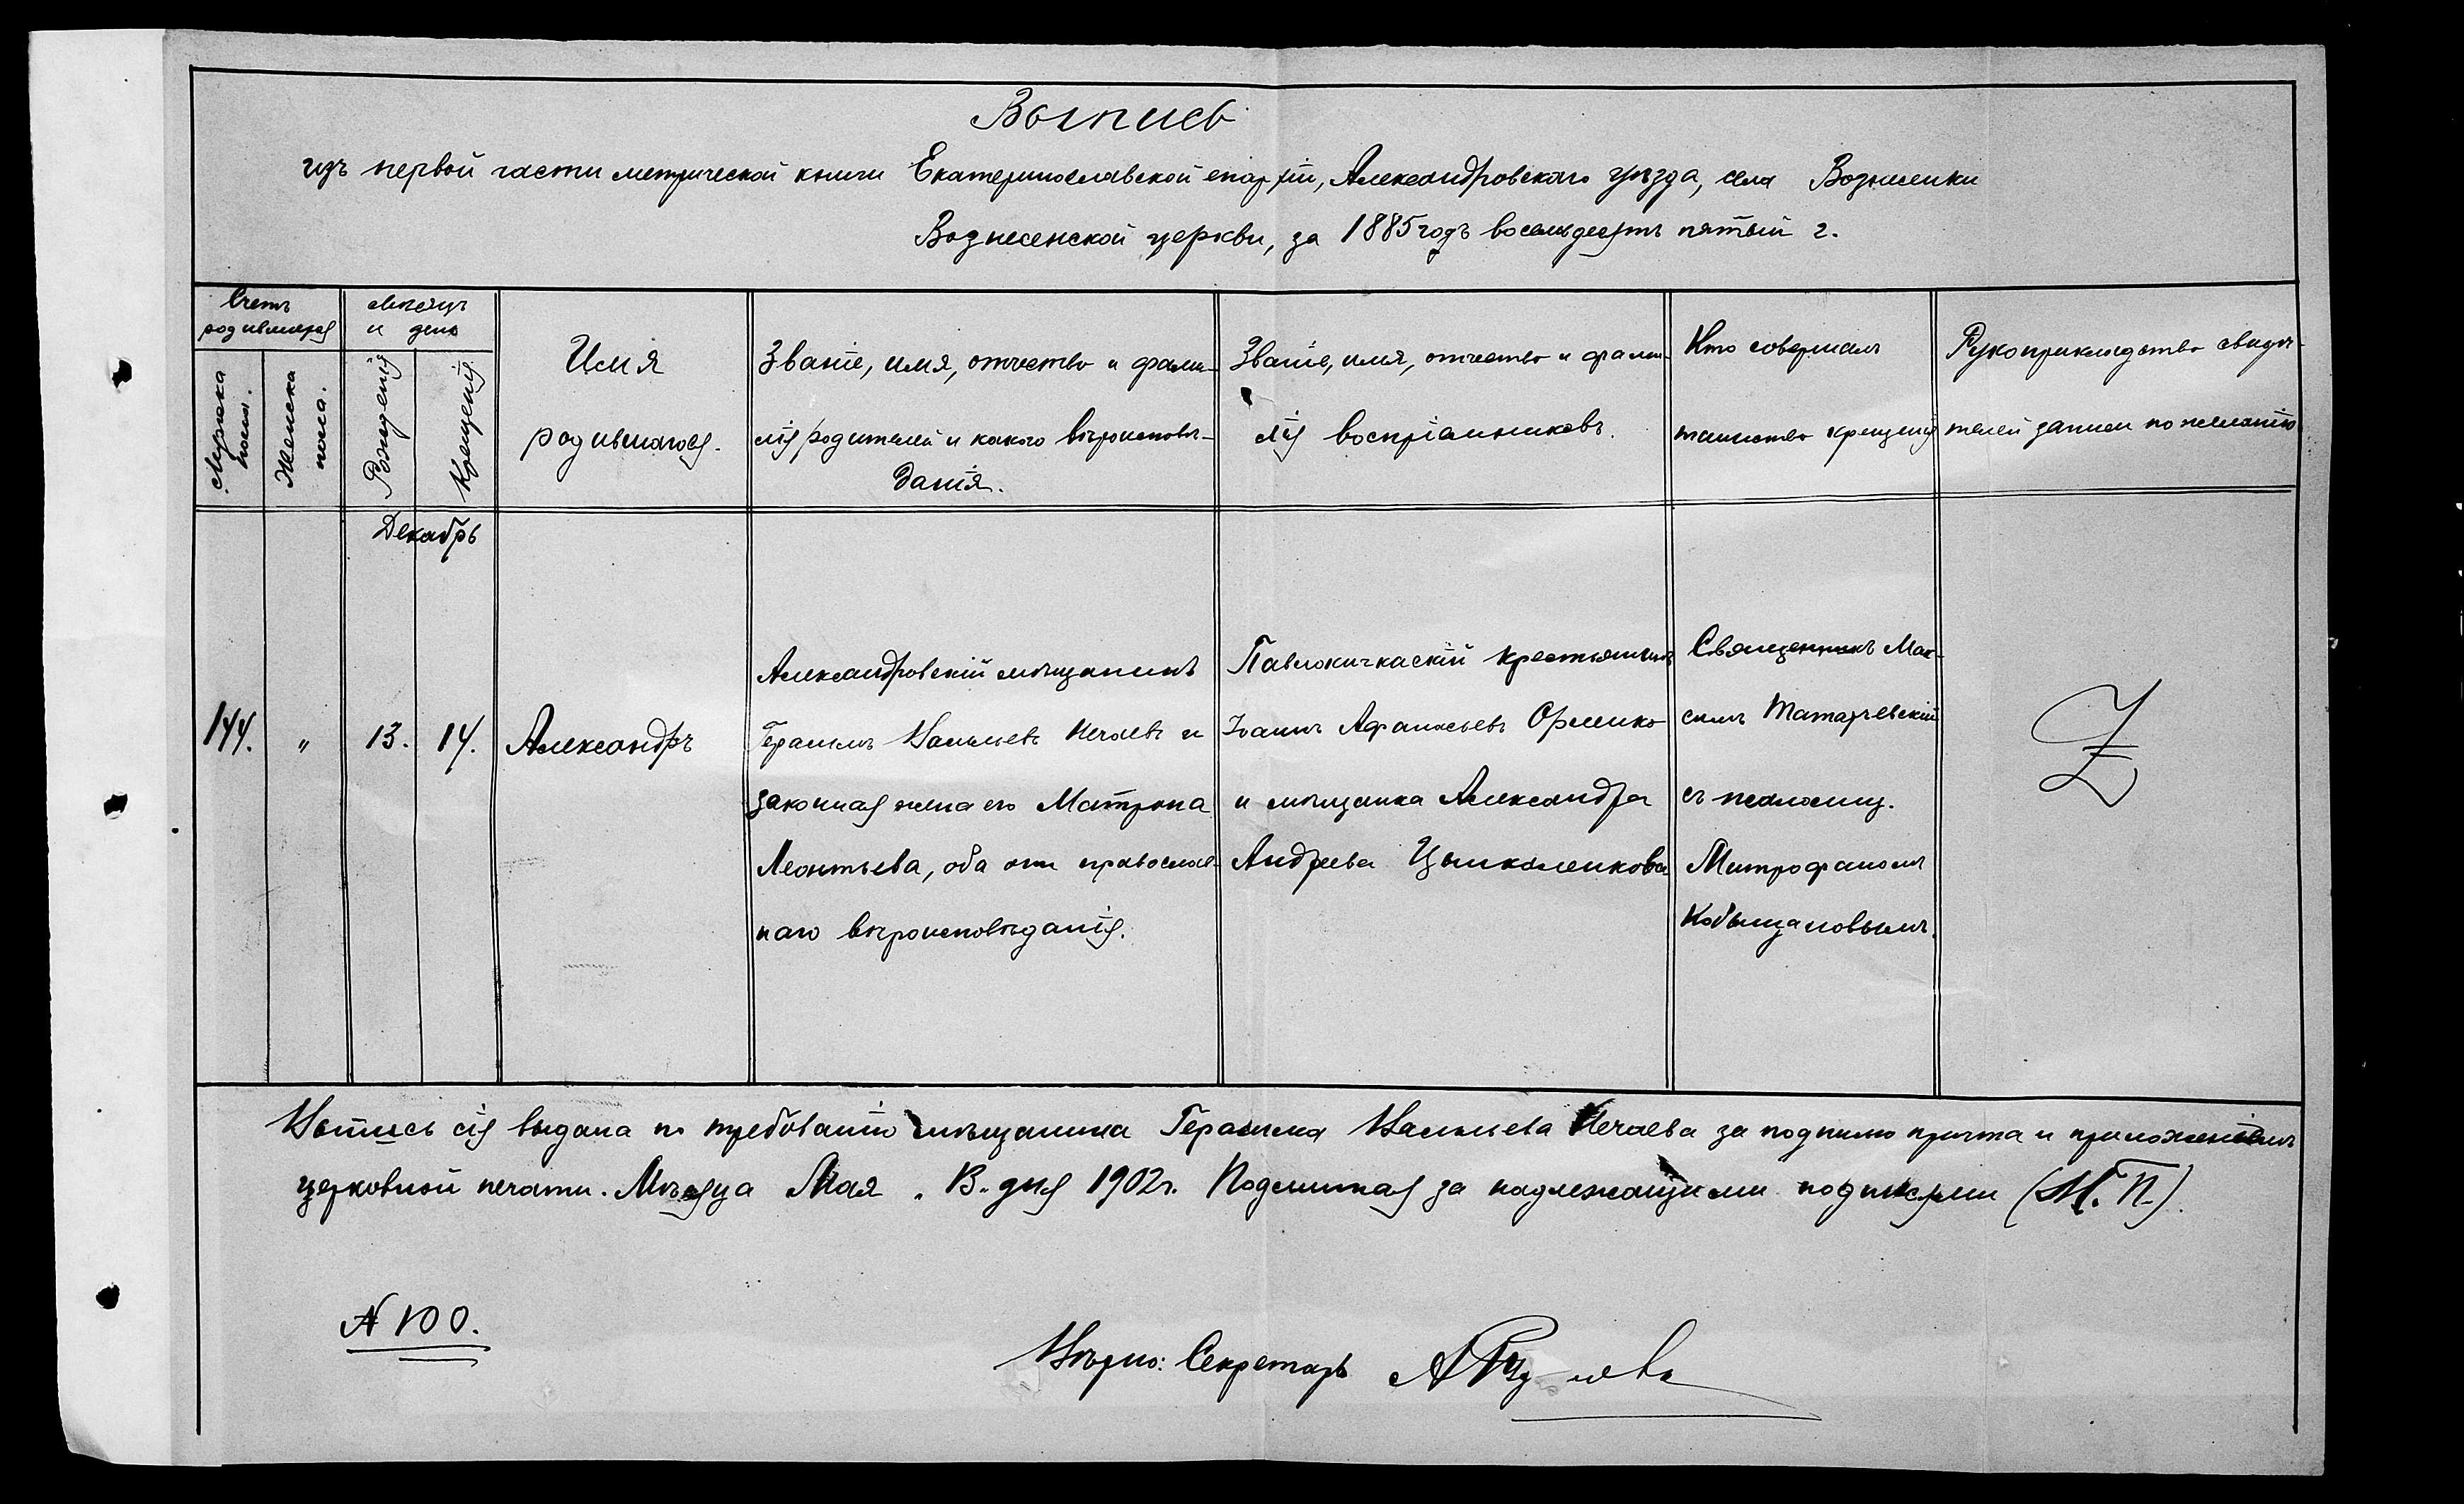 Выпись
изъ первой части метрической книги Екатеринославской епархіи, Александровскаго уѣзда, села Вознесенки
Вознесенской церкви, за 1885 годъ восемьдесятъ пятый г.
Счетъ
родившихся
Мужска
пола.
Женска
пола.
Мѣсяцъ
и день
Рожденія
Крещенія
Имя
родившагося.
Званіе, имя, отчество и фами-
лія родителей и какого вѣроисповѣ-
данія.
Званіе, имя, отчество и фами-
лія воспріемниковъ.
Кто совершалъ
таинство крещенія
Рукоприкладство свидѣ-
телей записи по желанію
Декабрь
144.
"
13.
14.
Александръ
Александровскій мѣщанинъ
Герасимъ Васильевъ Нечаевъ и
законная жена его Матрона
Леонтьева, оба они православ-
наго вѣроисповѣданія.
Павлокичкаскій крестьянинъ
Іоаннъ Афанасьевъ Орленко
и мѣщанка Александра
Андреева Цымаленкова
Священникъ Мак-
симъ Татарчевскій
съ псаломщ.
Митрофаномъ
Кобыщановымъ.
Выпись сія выдана по требованію мѣщанина Герасима Васильева Нечаева за подписью причта и приложеніемъ
церковной печати. Мѣсяца Мая "13" дня 1902 г. Подлинная за надлежащими подписями (М. П.).
№ 100.
Вѣрно: Секретарь